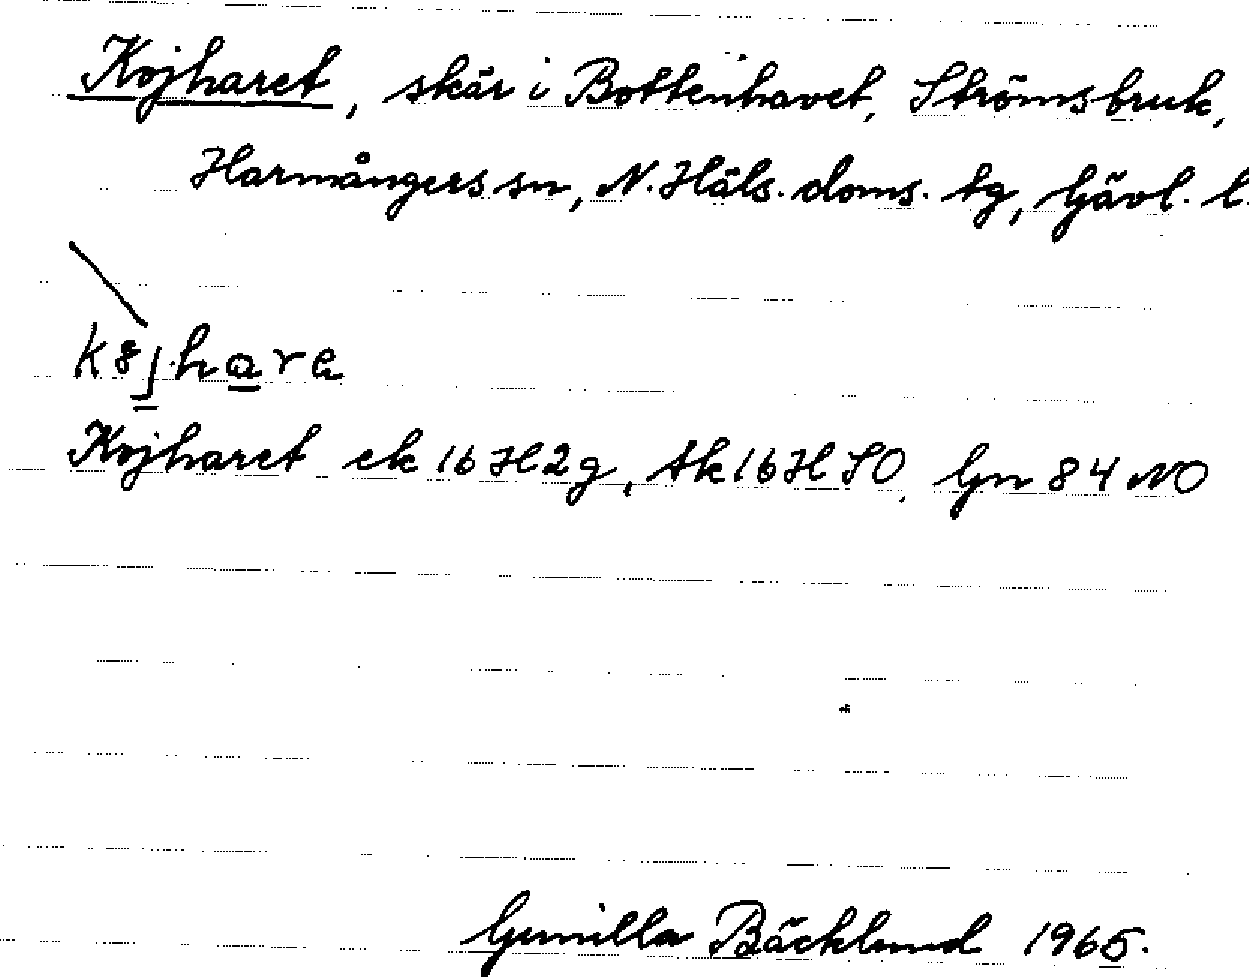 Kojharet, skär i Bottenhavet, Strömsbruk,
Harmångers sn, N. Häls. doms. tg, Gävl. l.
Kojharet ek 16H2g, tk16HSO, Gn 84 NO
Gunilla Bäcklund 1965.